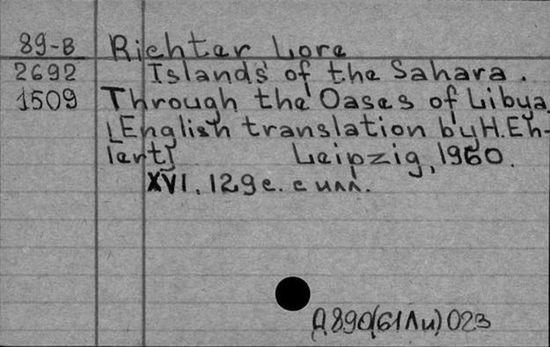 89-В Richter Lore
2692 Islands of the Sahara.
1509 Through the Oases of Libya
[English translation by H. Eh-
lert] Leipzig, 1960.
XVI. 129с. с илл.
Д890(61Ли)023